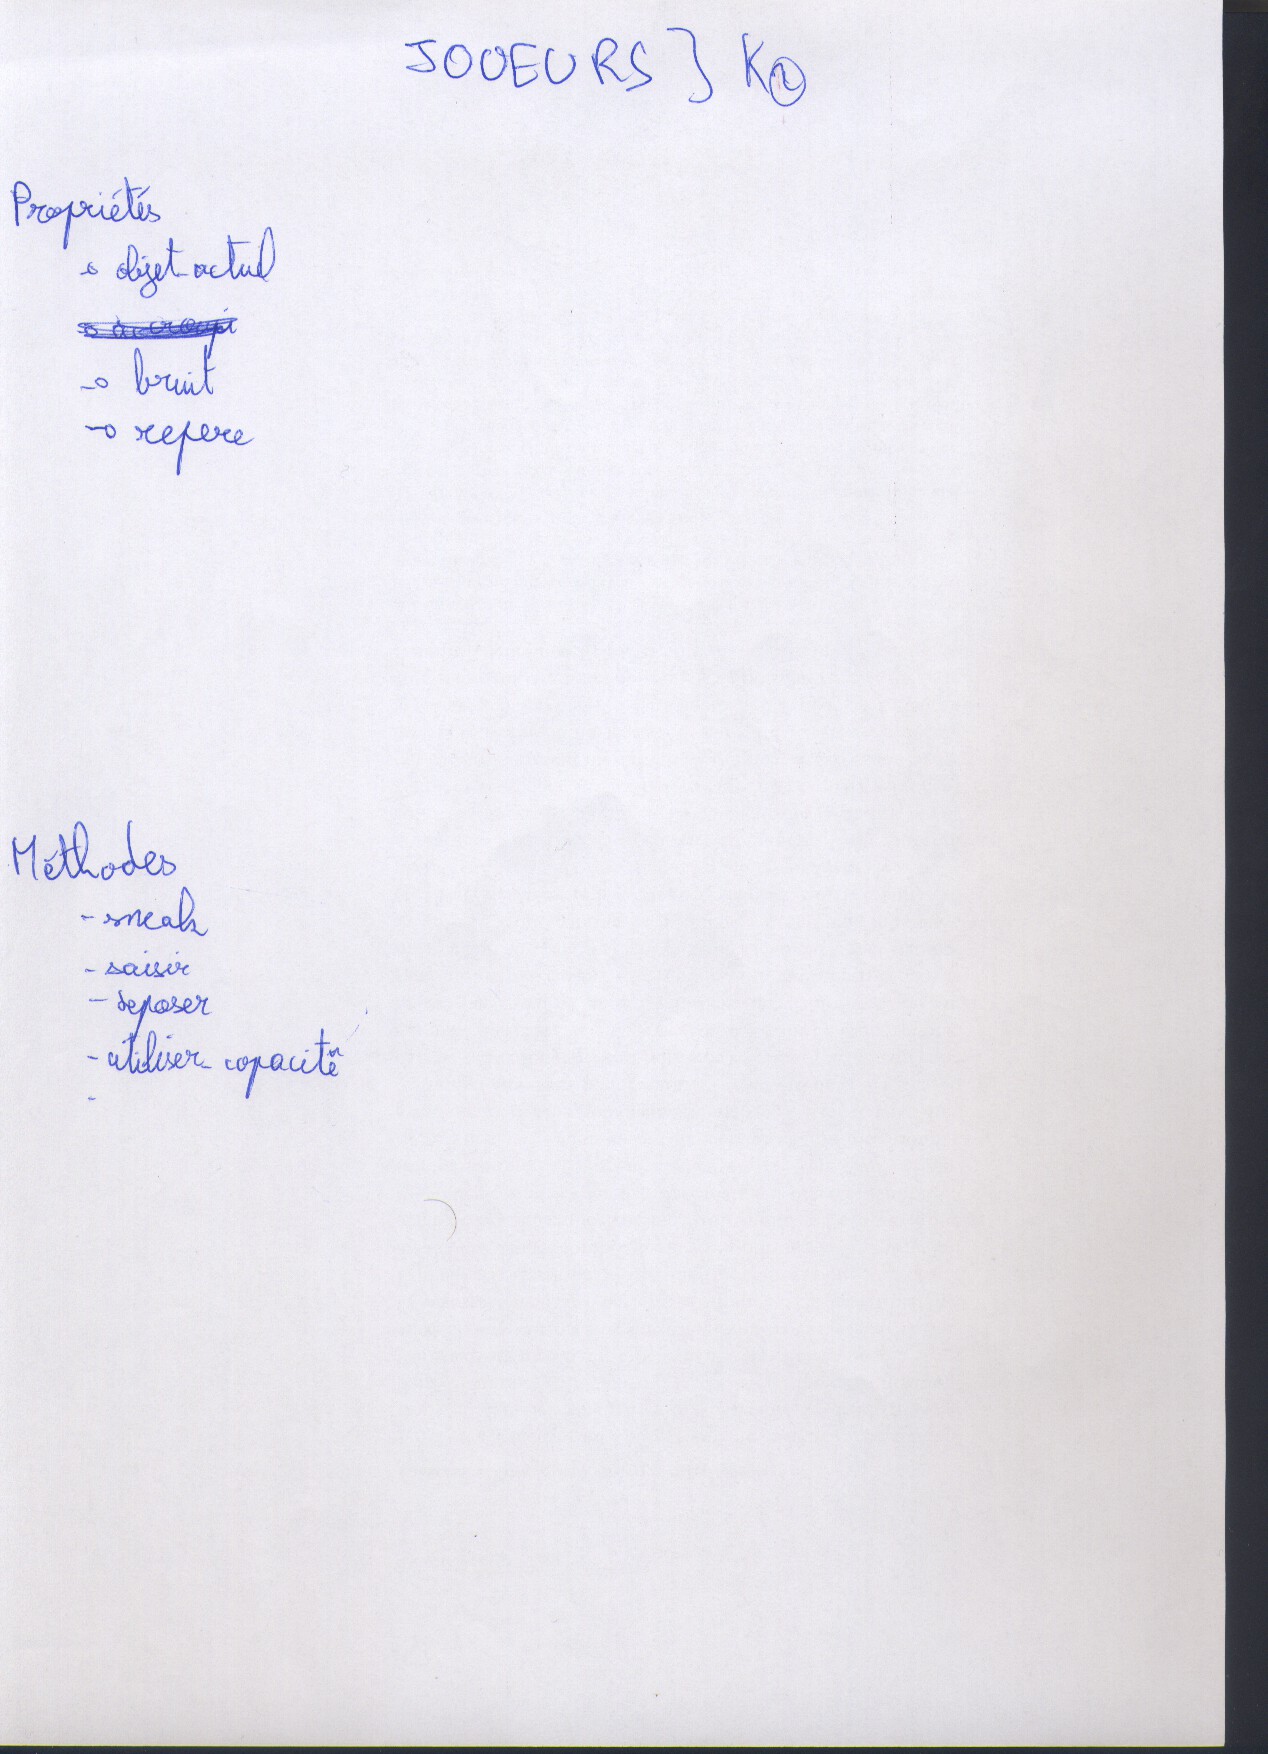 JOUEURS } K②
Propriétés
o objet_actuel
o accroupi
-o bruit
-o repere
Méthodes
- sneak
- saisir
- deposer
- utiliser_capacité
-